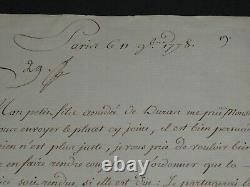 Paris ce 11 9bre 1778.
Mon petit fils amédé de Duras me prie Monsi
vous envoyer le placet cy joint, il est persua
bien n'est plus juste, je vous prie de vouloir bien
en faire rendre co ordonner que la
ice soit rendue, si elle est due. Je partagerai